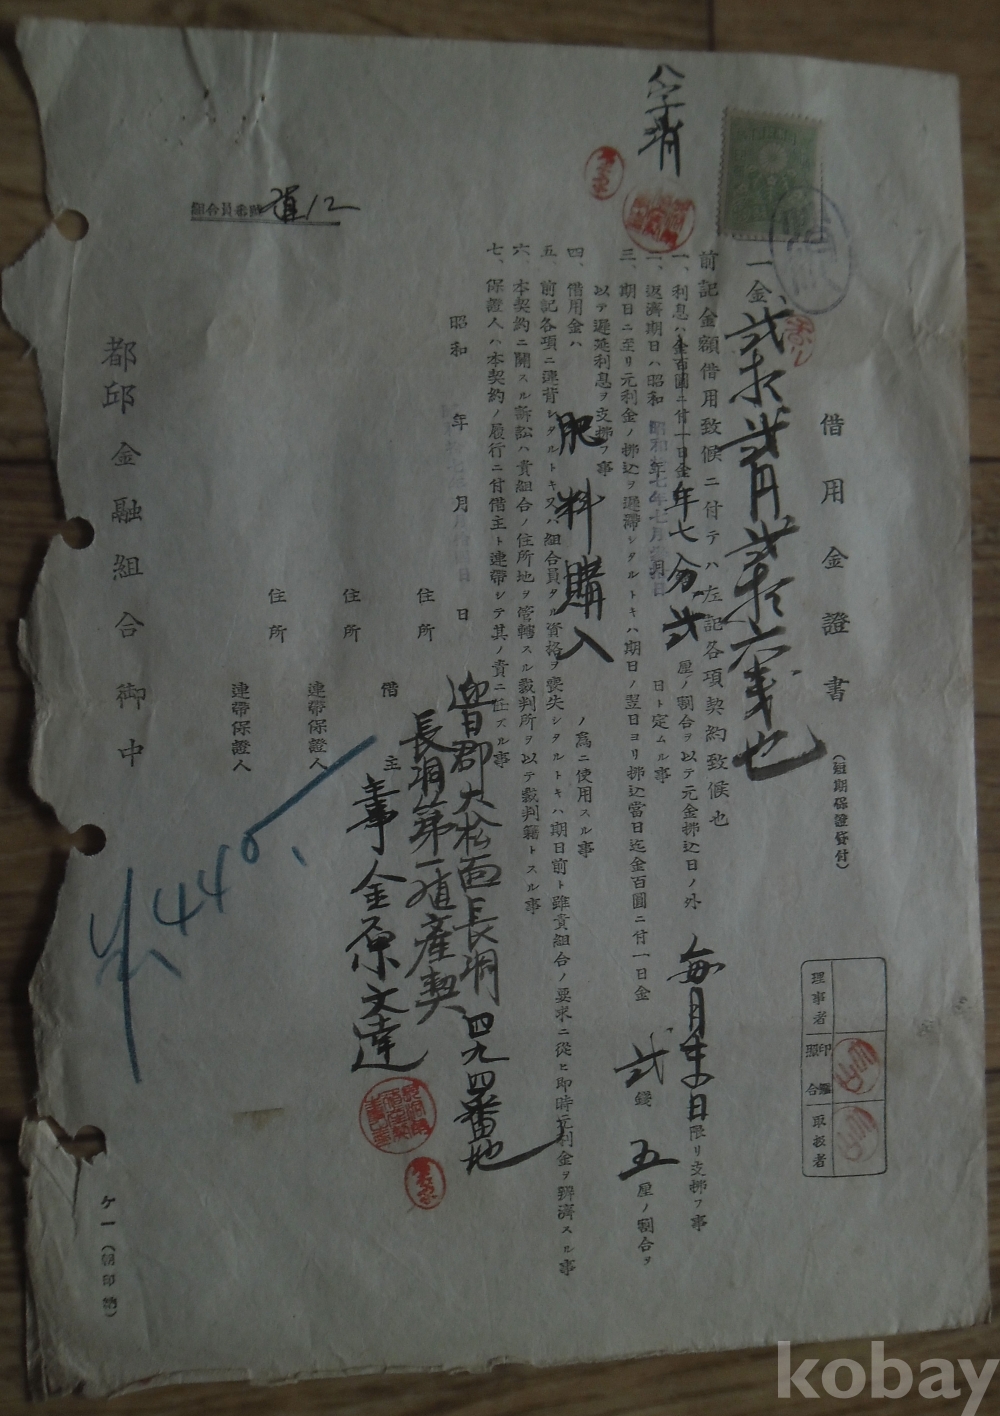 借用金證書
(短期保證貸付)
一金貳拾貳円貳拾六戋也
前記金額借用致候ニ付テハ左記各項契約致候也
一、利息ハ金百圓ニ付一日金年七分貳厘ノ割合ヲ以テ元金拂込日ノ外毎月末日限リ支拂フ事
二、返濟期日ハ昭和 昭和七年七月 日ト定ムル事
三、期日ニ至リ元利金ノ拂込ヲ遲滯シタルトキハ期日ノ翌日ヨリ拂込當日迄金百圓ニ付一日金貳錢五厘ノ割合ヲ
以テ遲延利息ヲ支拂フ事
四、借用金ハ肥料購入ノ爲ニ使用スル事
五、前記各項ニ違背シタルトキ又ハ組合員タル資格ヲ喪失シタルトキハ期日前ト雖貴組合ノ要求ニ從ヒ即時元利金ヲ辨濟スル事
六、本契約ニ關スル訴訟ハ貴組合ノ住所地ヲ管轄スル裁判所ヲ以テ裁判籍トスル事
七、保證人ハ本契約ノ履行ニ付借主ト連帶シテ其ノ責ニ任ズル事
昭和 年 月 日
住所 郡大松面長洞四九四番地
長洞第一殖産契
借主 金原文達
住所
連帶保證人
住所
連帶保證人
都邱金融組合御中
組合員番號 12
理事者
印鑑照合
取扱者
4440
ケ一(朝印納)
kobay